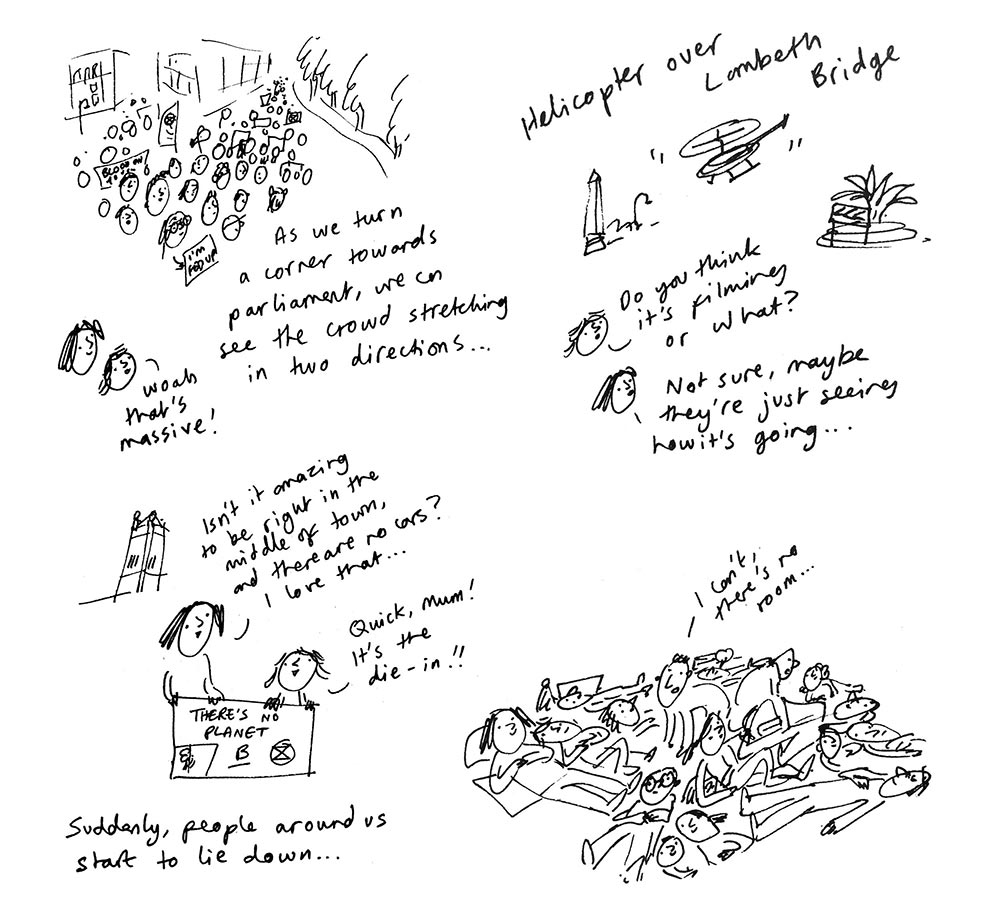 BLOOD ON
I'M
FED UP
As we turn
a corner towards
parliament, we can
see the crowd stretching
in two directions...
woah
that's
massive!
Helicopter over
Lambeth
Bridge
Do you think
it's filming
or what?
Not sure, maybe
they're just seeing
how it's going...
Isn't it amazing
to be right in the
middle of town,
and there are no cars?
I love that...
Quick, Mum!
It's the
die-in!!
THERE'S NO
PLANET
B
Suddenly, people around us
start to lie down...
I can't,
there's no
room...